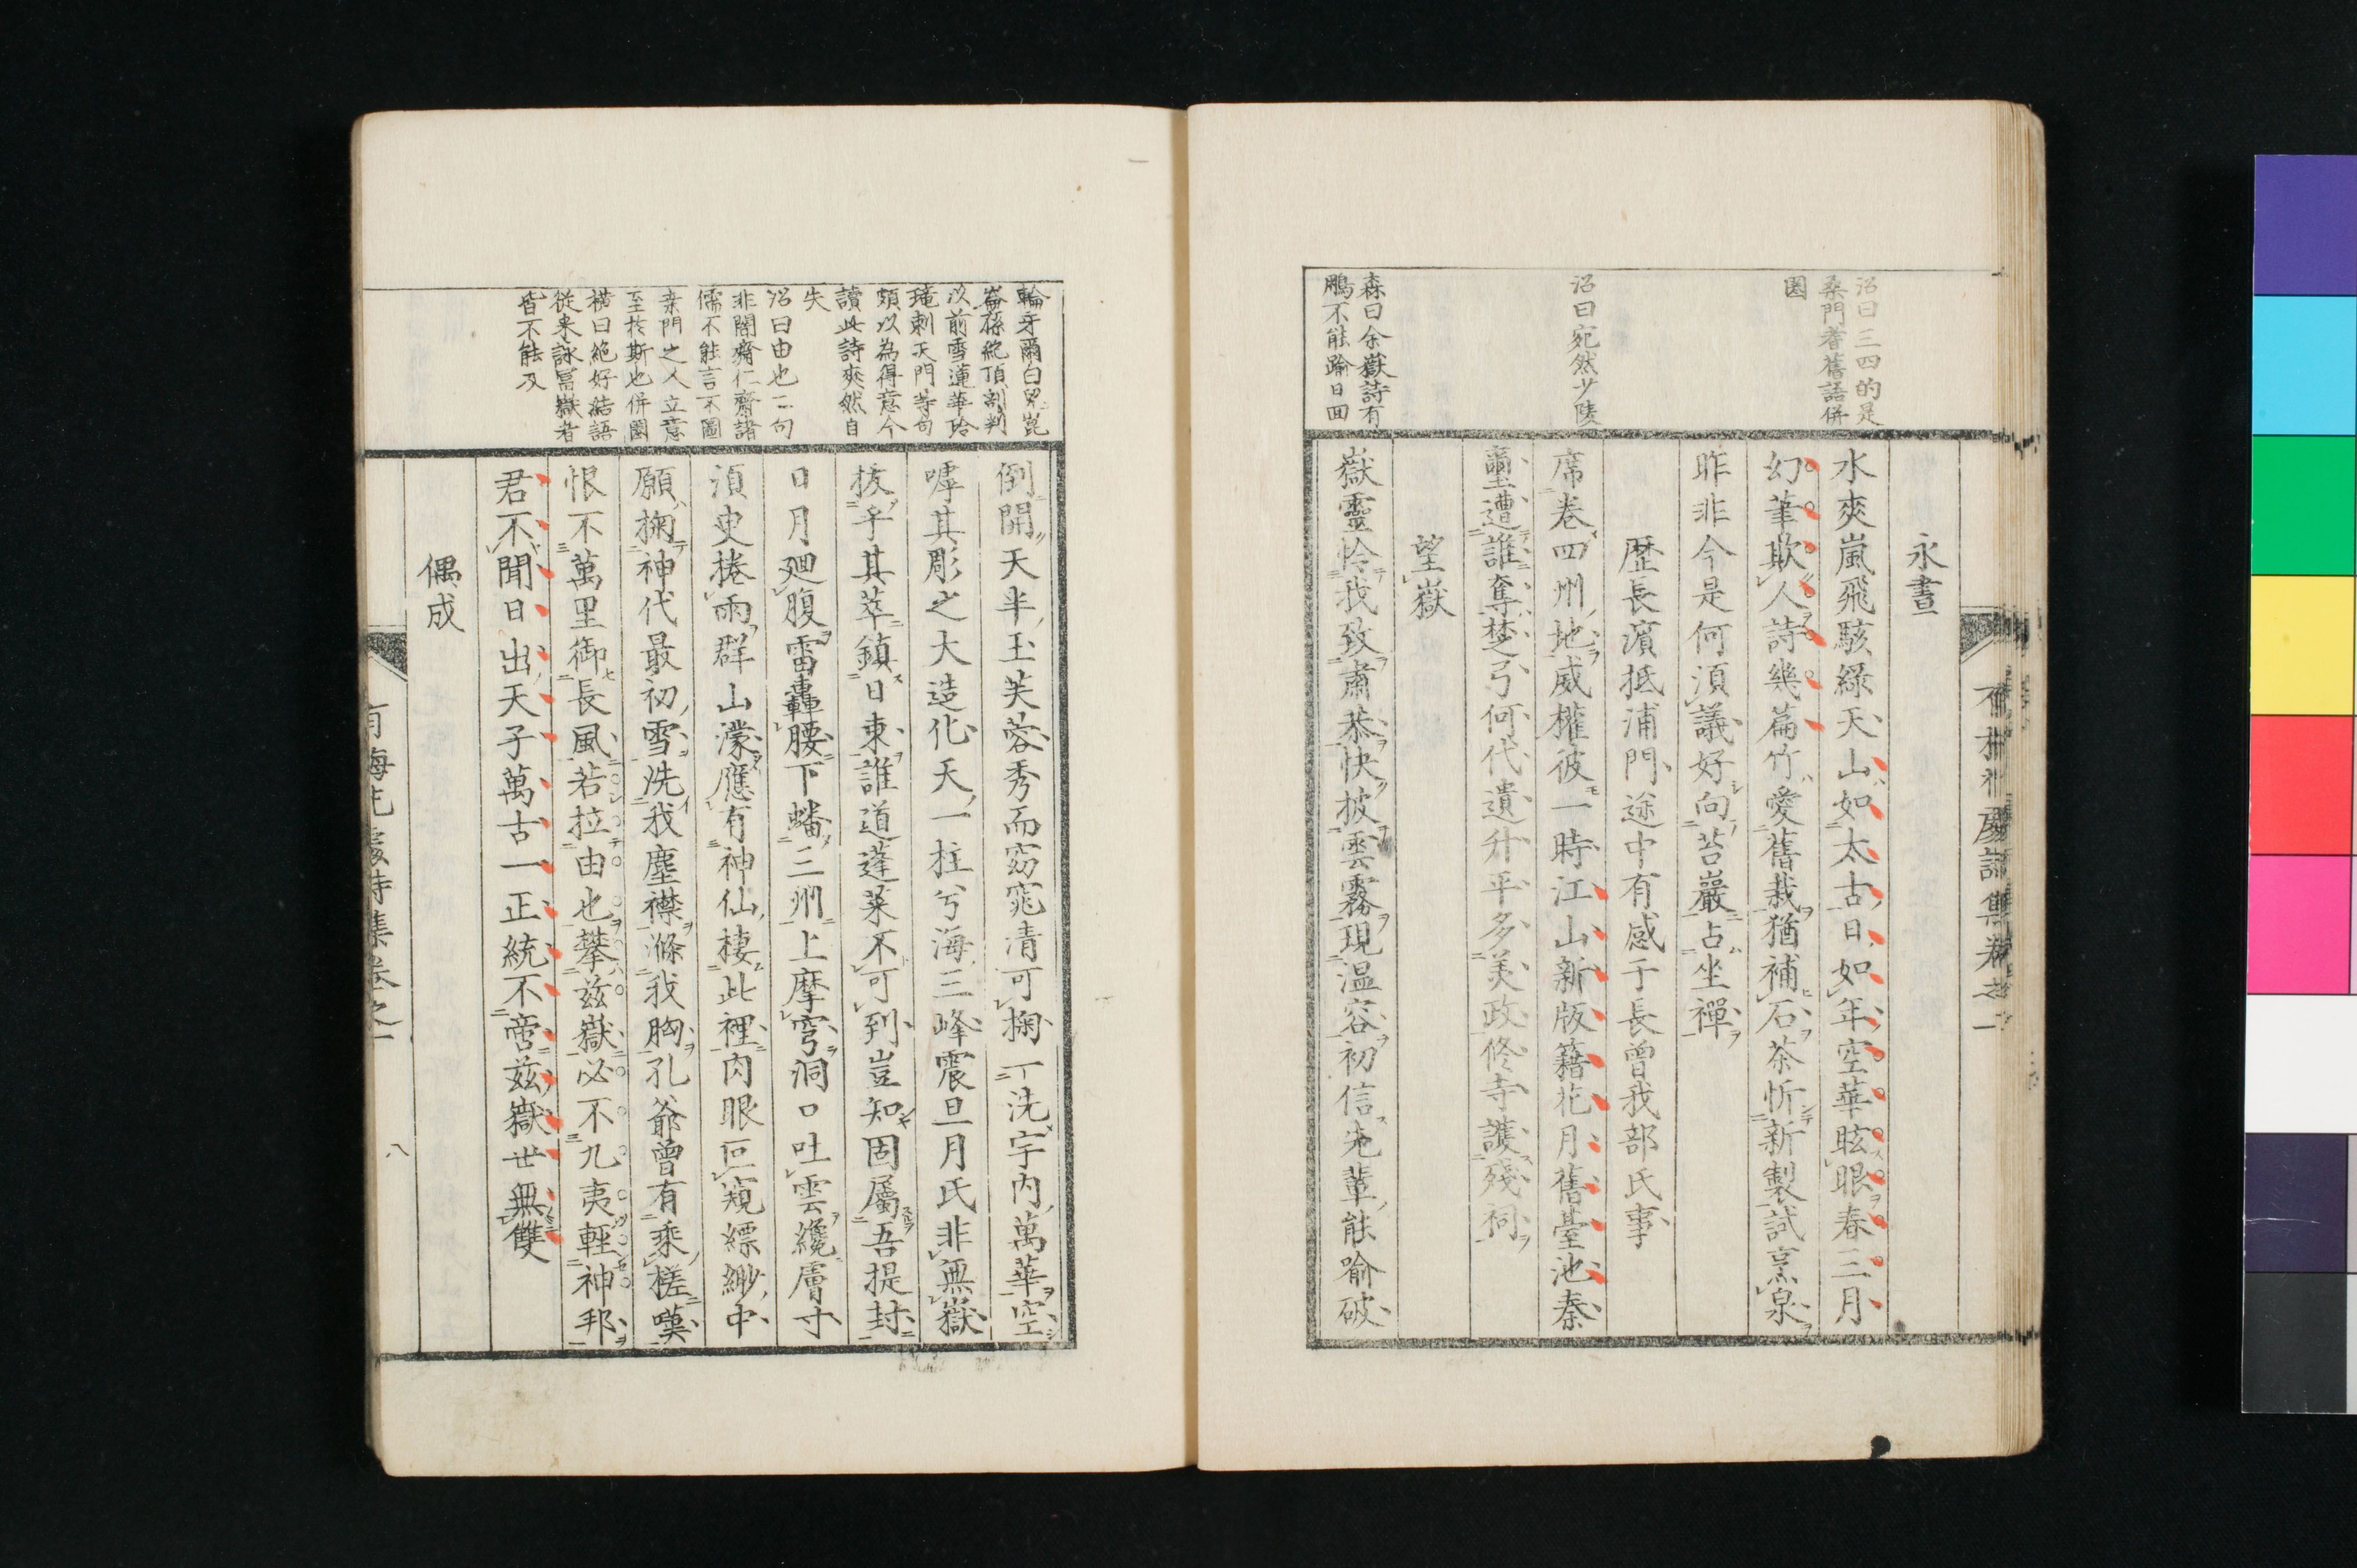 永晝
水爽嵐飛駭綠天山如太古日如年空華眩眼春三月
幻筆欺人詩幾篇竹愛舊栽猶補石茶忻新製試烹泉
昨非今是何須議好向苔巖占坐禪
歴長濱抵浦門途中有感于長曾我部氏事
席卷四州地威權彼一時江山新版籍花月舊臺池秦
璽遭誰奪楚弓何代遺升平多美政修寺護殘祠
望嶽
嶽靈怜我致肅恭快披雲霧現温容初信先輩能喻破
沼曰三四的是
桑門耆舊語併
圏
沼曰宛然少陵
森曰余嶽詩有
鵬不能踰日回
倒開天半玉芙蓉秀而窈窕清可掬一洗宇内萬華空
嘑其彫之大造化天一柱兮海三峰震旦月氏非無嶽
拔乎其萃鎮日東誰道蓬萊不可到豈知固屬吾提封
日月廻腹雷轟腰下蟠三州上摩穹洞口吐雲纔膚寸
須臾捲雨群山濛應有神仙棲此裡肉眼叵窺縹緲中
願掬神代最初雪洗我塵襟滌我胸孔爺曾有乘槎嘆
恨不萬里御長風若拉由也攀茲嶽必不九夷輕神邦
君不聞日出天子萬古一正統不啻茲嶽世無雙
偶成
輪牙爾白異崑
崙孫絶頂割判
以前雪蓮華玲
瓏刺天門等句
頗以為得意今
讀此詩爽然自
失
沼曰由也二句
非闇齋仁齋諸
儒不能言不圖
桑門之人立意
至於斯也併圏
横曰絶好結語
從來詠冨嶽者
皆不能及
詩集卷之一
八